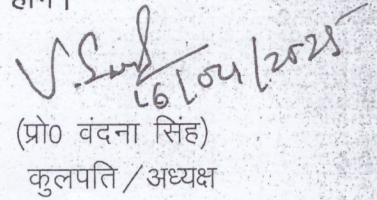 V. Singh
16/04/2025
(प्रो0 वंदना सिंह)
कुलपति / अध्यक्ष